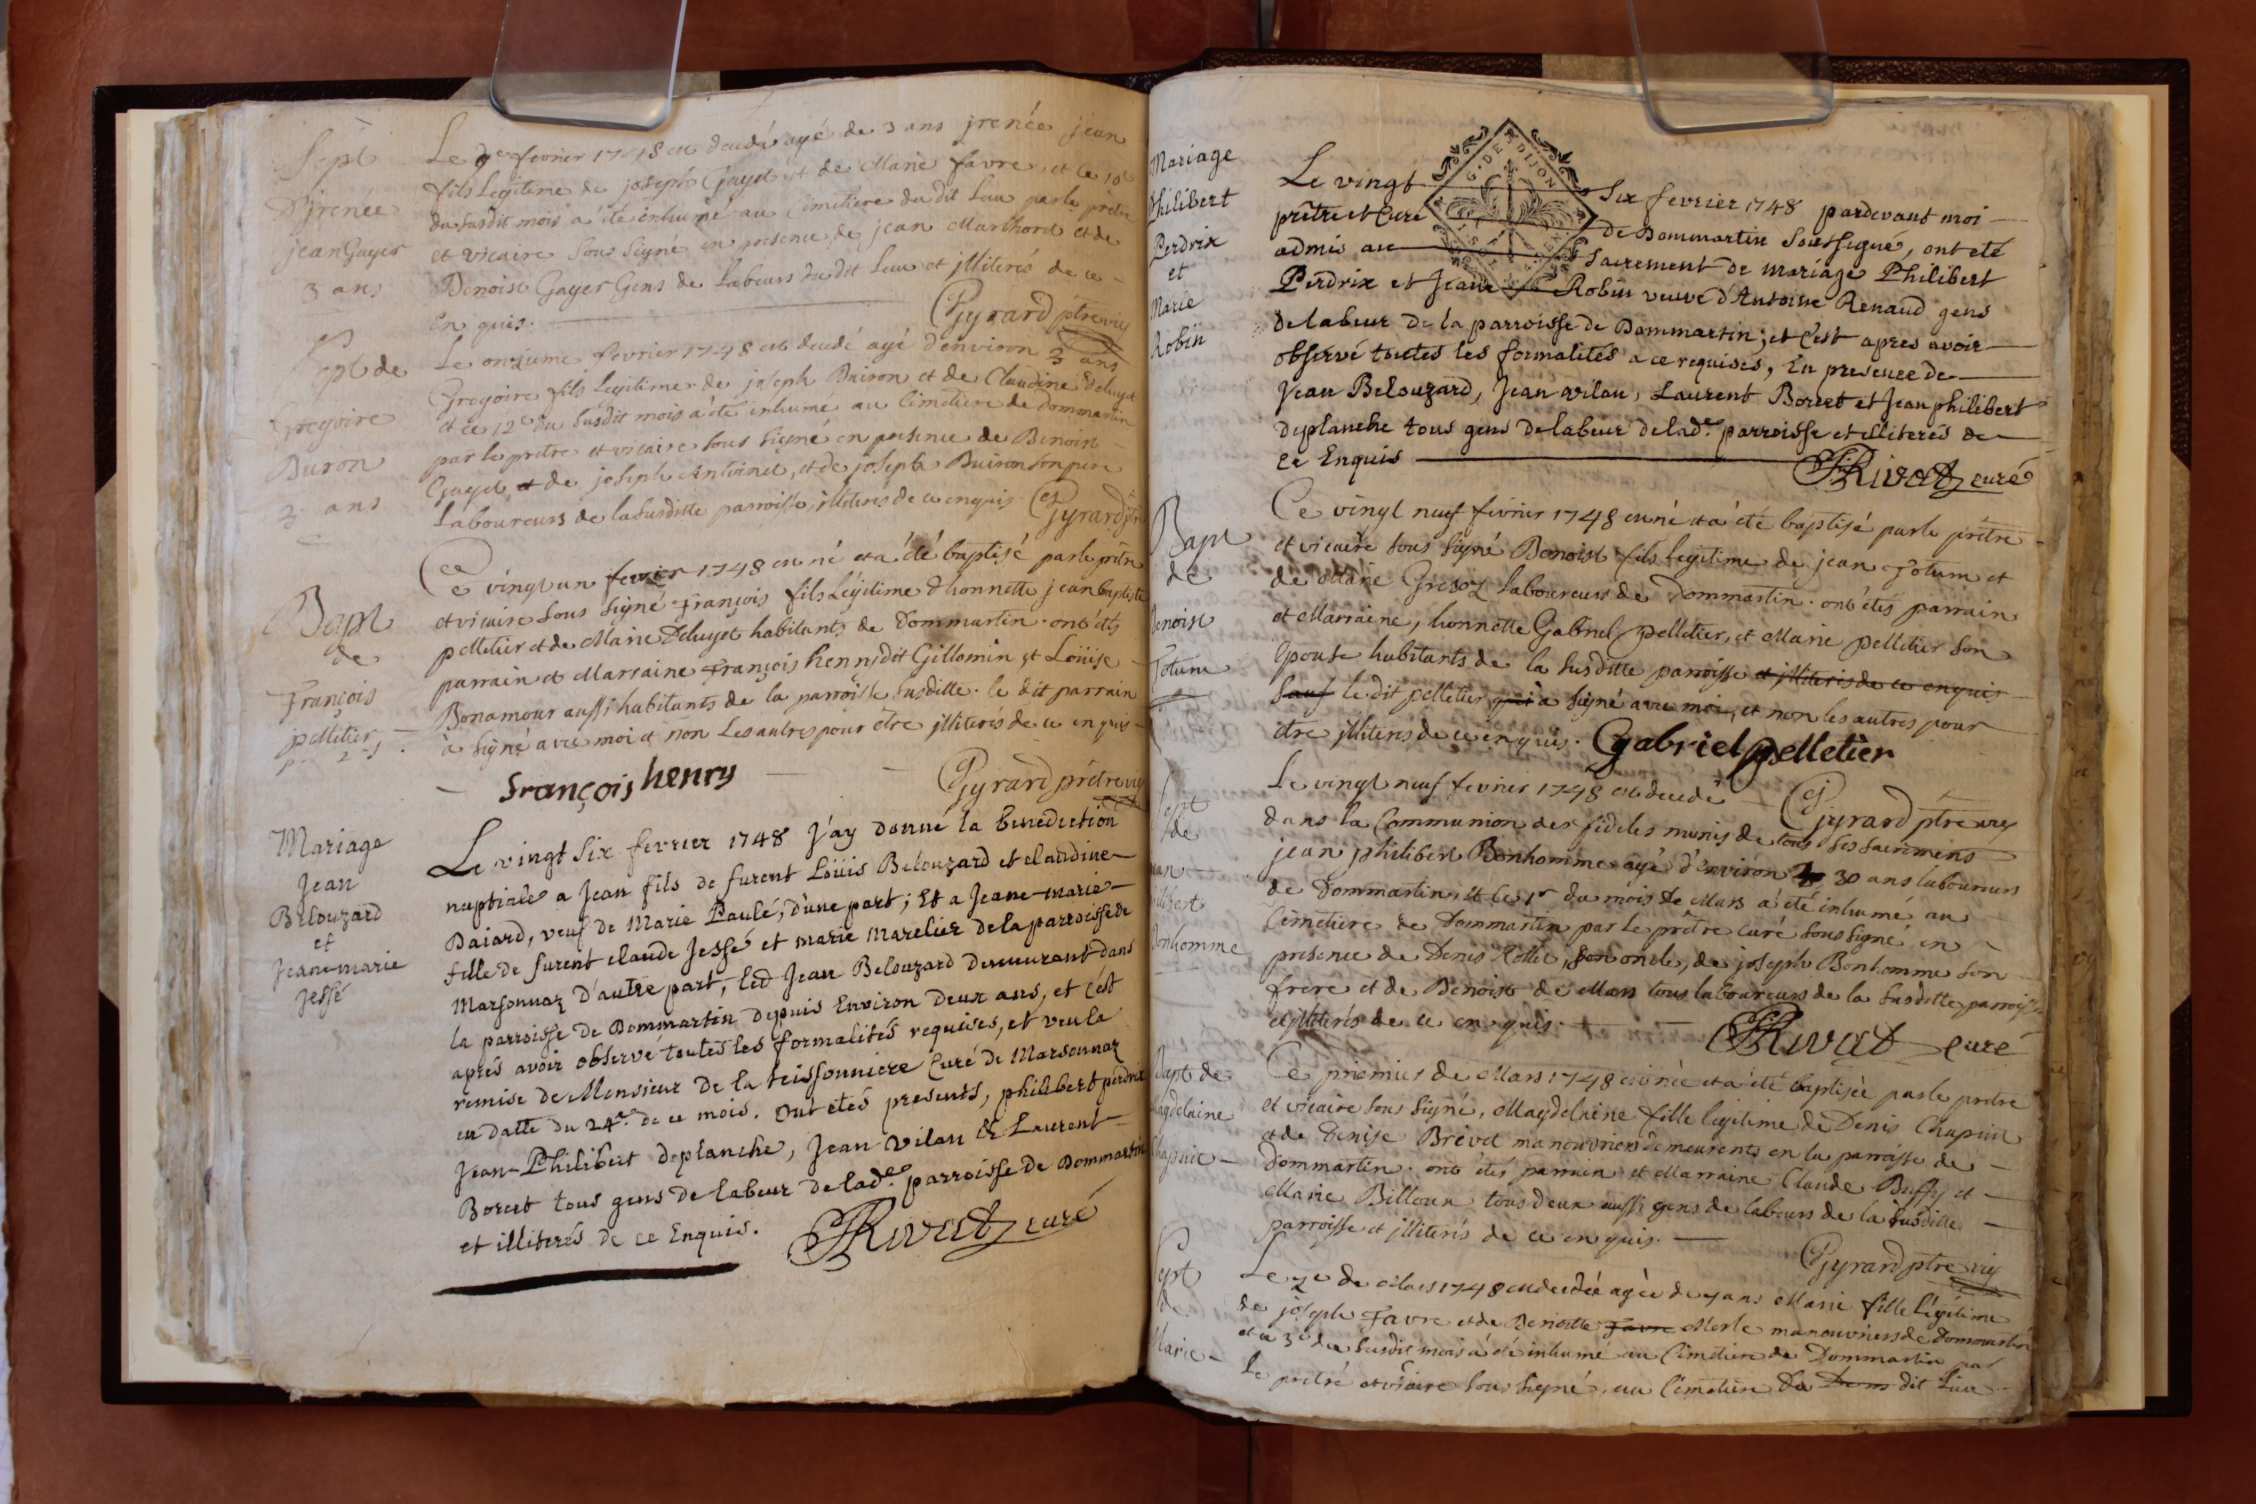 Sept
D'jrenée
jean Gayer
3 ans
Le 9e fevrier 1748 est decedé agé de 3 ans jrenée jean
fils Legitime de joseph Gayet et de Marie favre, et le 10e
du susdit mois a été inhumé au Cimetiere du dit Lieu par le pretre
et vicaire sous signé en presence de jean Marthoret et de
Benoist Gayer Gens de Labeurs du dit Lieu et jlliterés de ce
en quis.
Gyrard ptre vic
Sept de
Gregoire
Buron
3 ans
Le onzieme fevrier 1748 est decedé agé d'environ 3 ans
Gregoire fils Legitime de joseph Buiron et de Claudine Deluyet
et ce 12e du susdit mois a été inhumé au Cimetiere de Dommartin
par le pretre et vicaire sous signé en presence de Benoist
Gayet, et de joseph Antoinet, et de joseph Buiron son pere
Laboureurs de la susditte parroisse, jlliterés de ce enquis. Gyrard ptre
Bapt
de
François
pelletier
Ce vingt un fevrier 1748 est né et a été baptisé par le ptre
et vicaire sous signé François fils Légitime d'honnette jean baptiste
pelletier et de Marie Deluyet habitants de Dommartin. ont étés
parrain et Marraine François henry dit Gillomin et Loüise
Bonamour aussi habitants de la parroisse susditte. le dit parrain
à signé avec moi et non Les autres pour être jlliterés de ce enquis
françois henry
Gyrard prêtre vic
Mariage
Jean
Belouzard
et
Jeane-marie
Jessé
Le vingt six fevrier 1748 J'ay donné la benediction
nuptiale a Jean fils de furent Loüis Belouzard et claudine
Baiard, veuf de Marie Paulé, d'une part; Et a Jeane-marie
fille de furent claude Jessé et marie Marelier de la parroisse de
Marsonnaz D'autre part, led Jean Belouzard demeurant dans
la parroisse de Dommartin depuis Environ deux ans, et c'est
après avoir observé toutes les formalités requises, et veu la
remise de Monsieur de la teissonniere Curé de Marsonnaz
en datte du 24e de ce mois. ont étés presents, philibert perdrix
Jean-Philibert deplanche, Jean vilan & Laurent
Boret tous gens de labeur de lade parroisse de Dommartin
et illiterés de ce Enquis.
Rivat curé
Mariage
Philibert
Perdrix
et
Marie
Robin
G. DE DIJON
Le vingt six fevrier 1748 pardevant moi
prêtre et Curé de Dommartin soussigné, ont eté
admis au sacrement de mariage Philibert
Perdrix et Jeane Robin veuve d'Antoine Renaud gens
de labeur de la parroisse de Dommartin; et c'est apres avoir
observé toutes les formalités a ce requises, En presence de
Jean Belouzard, Jean vilan, Laurent Boret et Jean philibert
deplanche tous gens de labeur de lade parroisse et illiterés de
ce Enquis
Rivat curé
Bapt
de
Benoist
Totum
Ce vingt neuf fevrier 1748 est né et a été baptisé par le prêtre
et vicaire sous signé Benoist fils legitime de jean Totum et
de Marie Greboz Laboureurs de Dommartin. ont étés parrain
et Marraine, honnette Gabriel pelletier, et Marie pelletier son
Epouse habitants de la susditte parroisse et jlliterés de ce enquis
sauf le dit pelletier qui à signé avec moi, et non les autres pour
être jlliterés de ce enquis. Gabriel pelletier
Gyrard ptre vic
Sept
de
jean
philibert
Bonhomme
Le vingt neuf fevrier 1748 est decedé
dans la Communion des fideles munis de tous ses sacremens
jean philibert Bonhomme agé d'environ 30 ans laboureur
de Dommartin, et le 1er du mois de Mars a été inhumé au
Cimetiere de Dommartin par le prêtre curé sous signé en
presence de Denis Rollet, son oncle, de joseph Bonhomme son
frere et de Benoist de Mars tous laboureurs de la susditte parroisse
et jlliterés de ce enquis.
Rivat curé
Bapt de
Magdelaine
Chapuit
Ce premier de Mars 1748 est née et a été baptisée par le pretre
et vicaire sous signé, Magdelaine fille legitime de Denis Chapuit
et de Denise Brevet manouvriers demeurents en la parroisse de
Dommartin. ont étés parrain et Marraine Claude Buffy et
Marie Billoux tous deux aussi gens de labeurs de la susditte
parroisse et jlliterés de ce enquis.
Gyrard ptre vic
Sept
de
Marie
Le 2e de Mars 1748 est decedée agée de 7 ans Marie fille Légitime
de joseph Favre et de Benoitte Favre Merle manouvriers de Dommartin
et ce 3e du susdit mois a été inhumé au Cimetiere de Dommartin par
le pretre et vicaire sous signé, au Cimetiere du Dom dit Lieu